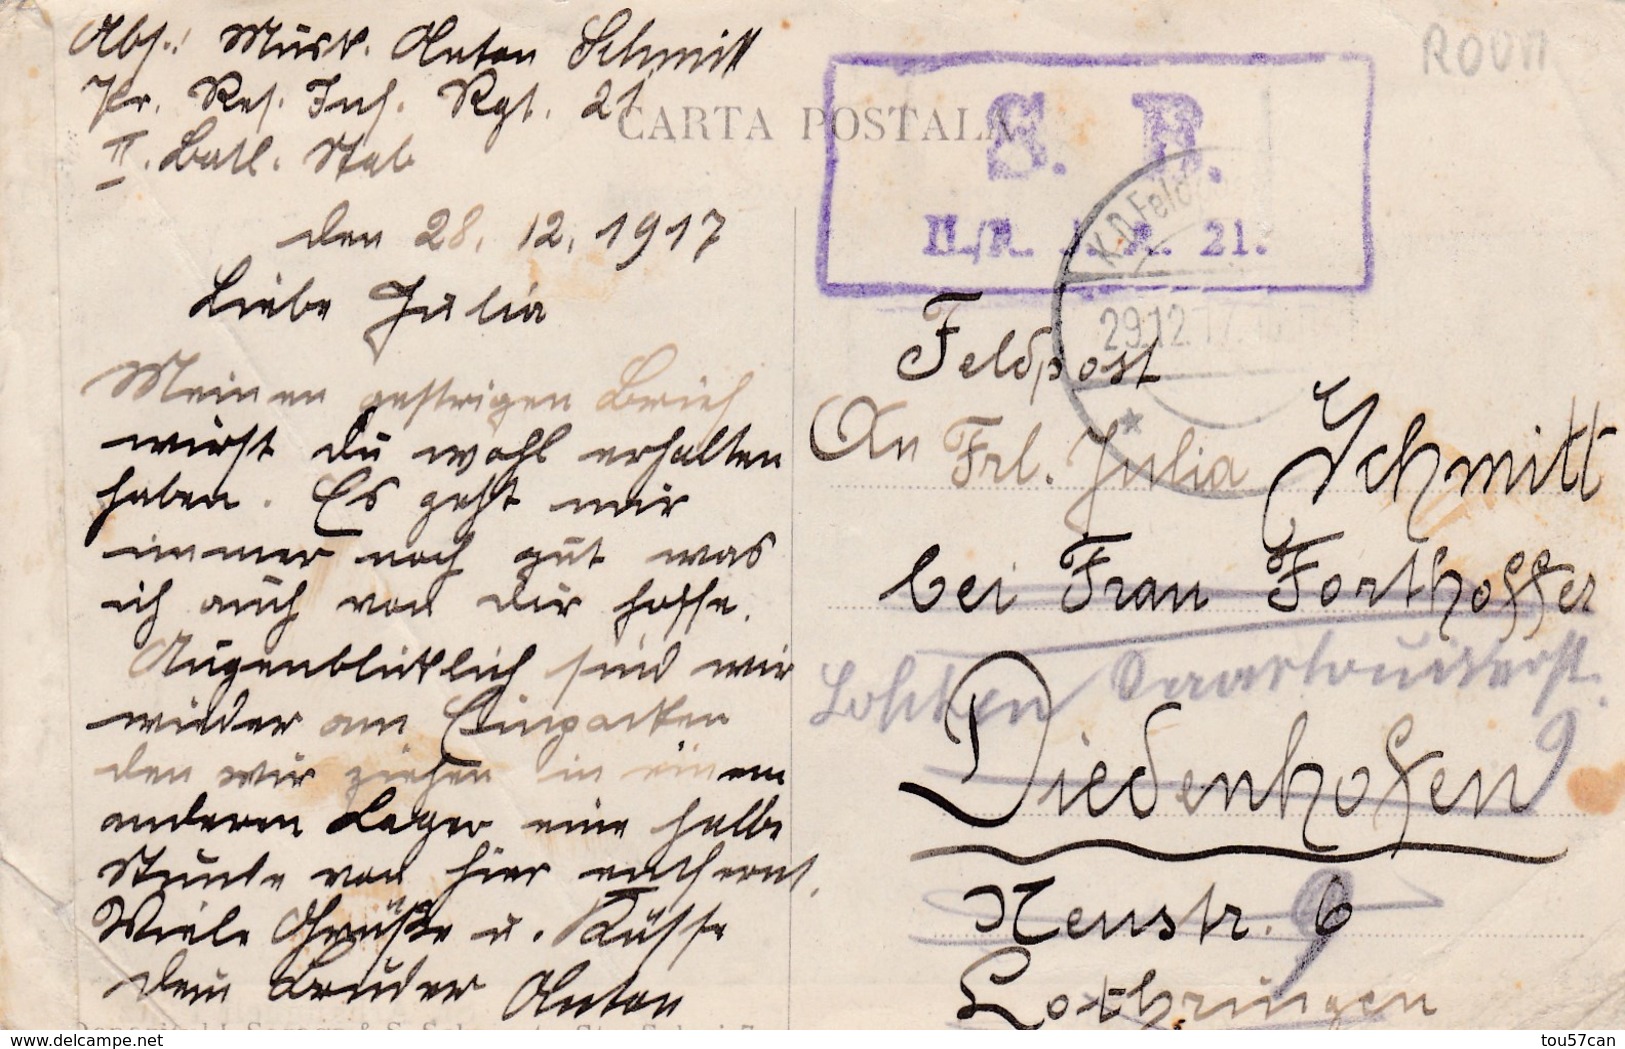 Abs.: Musk. Anton Schmitt
Pr. Res. Inf. Rgt. 21
II. Batl. Stab
den 28. 12. 1917
Liebe Julia
Meinen gestrigen Brief
wirst du wohl erhalten
haben. Es geht mir
immer noch gut was
ich auch von dir hoffe.
Augenblicklich sind wir
wieder am Einpacken
den wir ziehen in einem
anderen Lager eine halbe
Stunde von hier entfernt.
Viele Grüße u. Küsse
dein Bruder Anton
CARTA POSTALA
S. B.
II./R. I. R. 21.
K.D.Feld
29.12.17
ROUM
Feldpost
An Frl. Julia Schmitt
bei Frau Forthoffer
Saarlouiserst.
9
Diedenhofen
Neustr. 6
9
Lothringen
tou57can